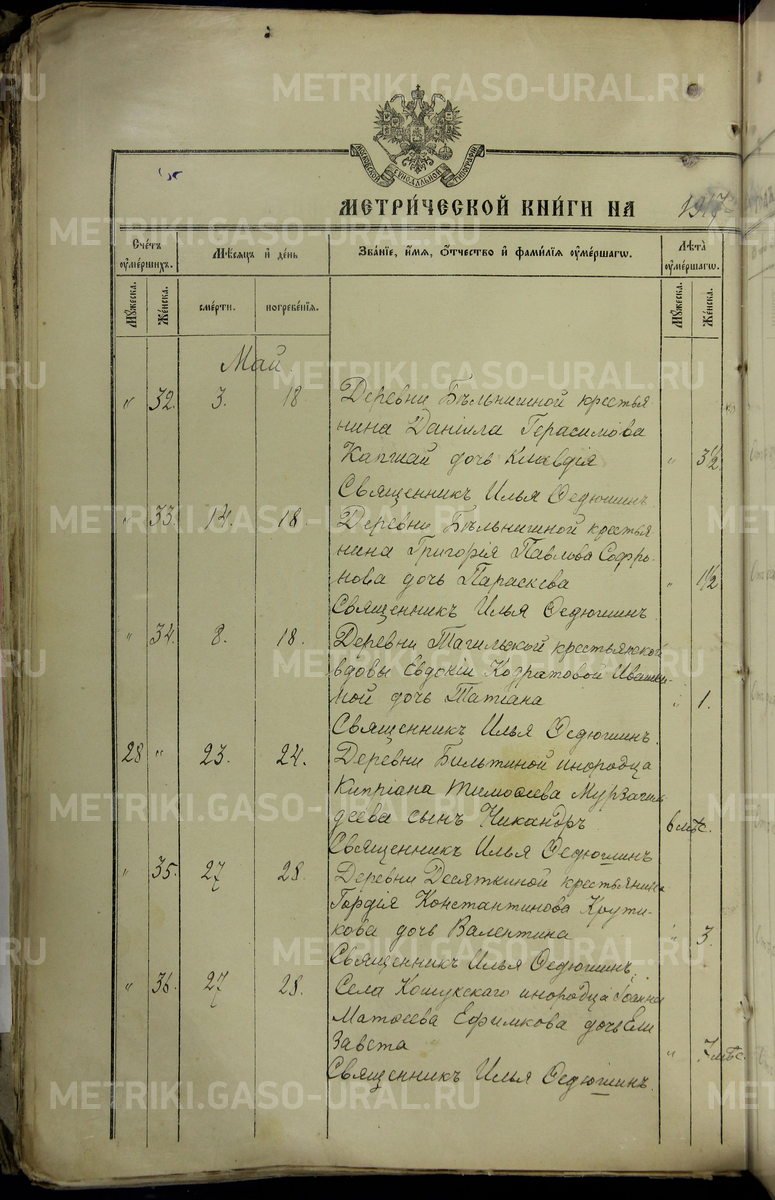 METRIKI.GASO-URAL.RU
МОСКОВСКОЙ СѴНОДАЛЬНОЙ ТИПОГРАФІИ
МЕТРИ́ЧЕСКОЙ КНИ́ГИ НА 1917
Сче́тъ ᲂу҆ме́ршихъ.
Мѣ́сяцъ и҆ де́нь
Зва́нїе, и҆́мя, ѻ҆́тчество и҆ фами́лїя ᲂу҆ме́ршагѡ.
Лѣ́та ᲂу҆ме́ршагѡ.
Мꙋ́жеска.
Же́нска.
сме́рти.
погребе́нїя.
Мꙋ́жеска.
Же́нска.
Май.
" 32. 3. 18. Деревни Бѣльнишной крестья
нина Даніила Герасимова
Капшай дочь Клавдія " 3½
Священникъ Илья Ѳедюшинъ
" 33. 14. 18. Деревни Бѣльнишной крестья
нина Григорія Павлова Софро-
нова дочь Параскева " 1½
Священникъ Илья Ѳедюшинъ.
" 34. 8. 18. Деревни Тагильской крестьянской
вдовы Евдокіи Кодратовой
мой дочь Татіана " 1.
Священникъ Илья Ѳедюшинъ.
28 " 23. 24. Деревни Бильтиной инородца
Кипріана Тимоѳеева Мурзагиль
деева сынъ Никандръ 6 мѣс.
Священникъ Илья Ѳедюшинъ
" 35. 27 28. Деревни Десяткиной крестьянина
Гордія Константинова Крути-
кова дочь Валентина " 3.
Священникъ Илья Ѳедюшинъ.
" 36. 27 28. Села Кошукскаго инородца Іоанна
Матѳеева Ефимкова дочь Ели
завета " 7 мѣс.
Священникъ Илья Ѳедюшинъ.